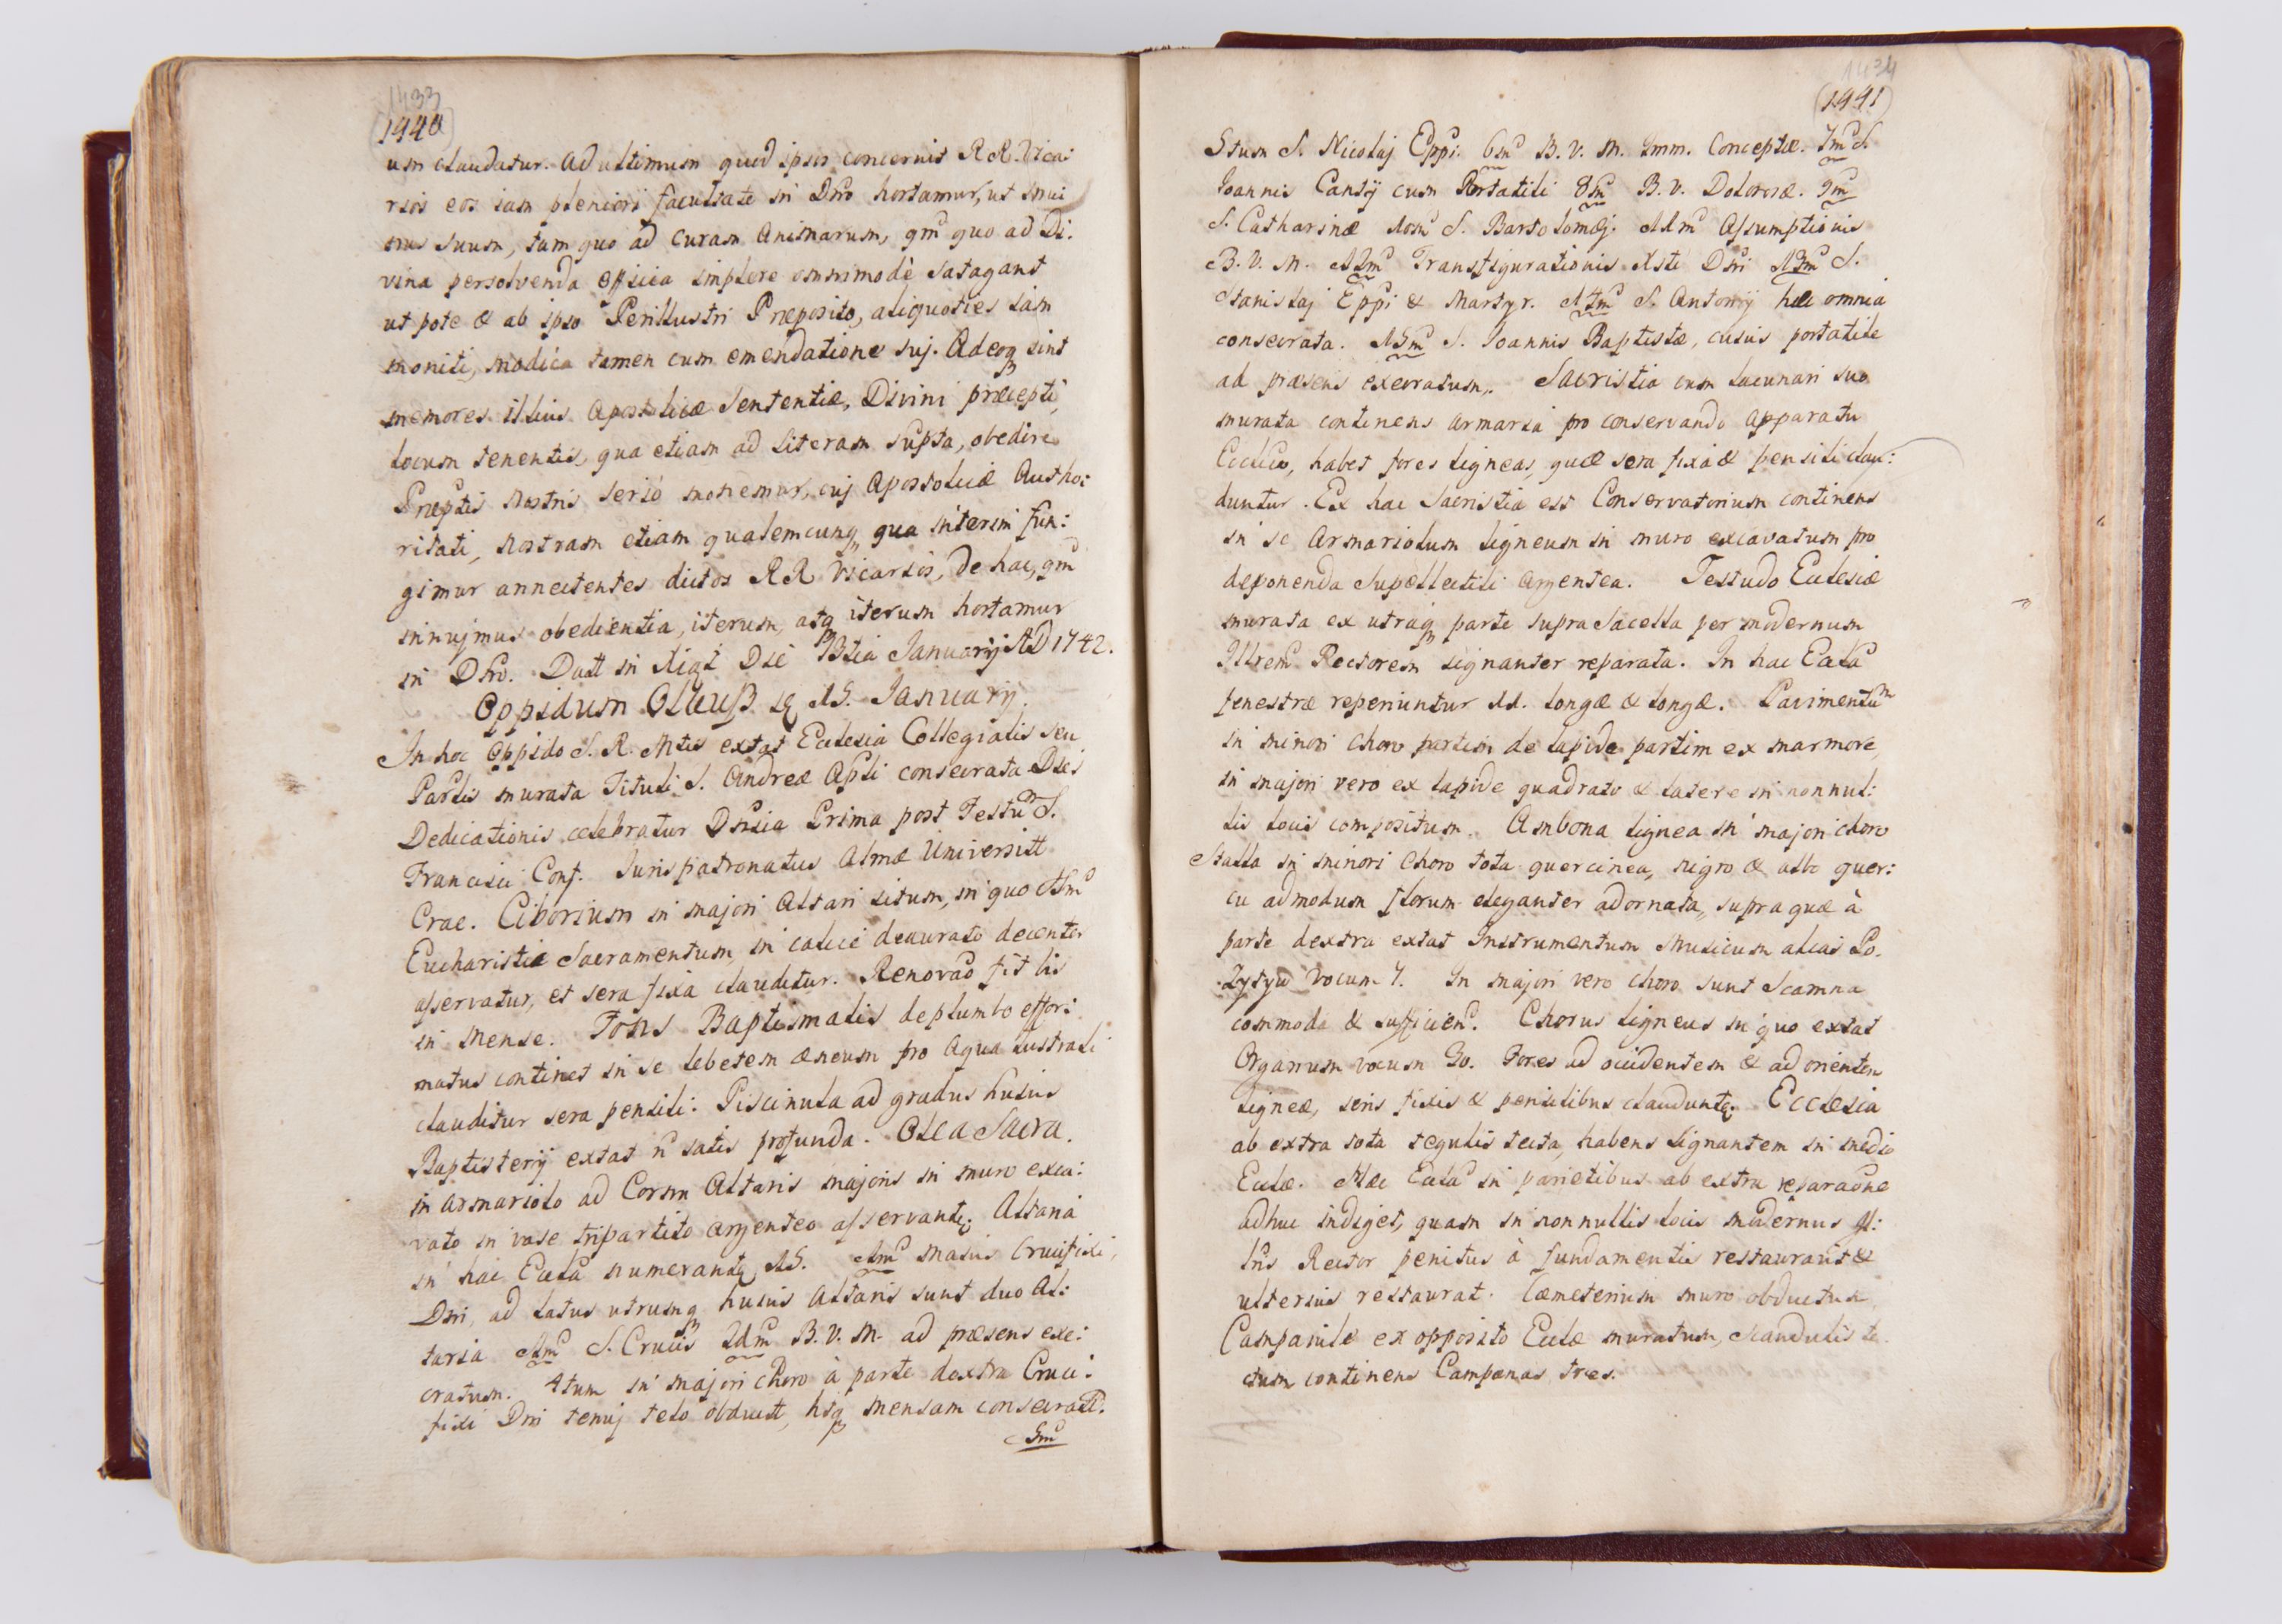 1433
(1440)
um claudatur. Ad ultimum quod ipsos concernit RR. Vica:
rios eos iam pleniori facultate in Dno hortamur, ut mu:
nus suum, tam quo ad curam Animarum, qm quo ad Di:
vina persolvenda officia implere omnimodè satagant
ut pote & ab ipso Perillustri Præposito, aliquoties iam
moniti, modica tamen cum emendatione sui. Adeoq sint
memores illius Apostolicæ Sententiæ, Divini præcepti
locum tenentis, qua etiam ad literam supta, obedire
Præptis Nostris serio monemur, cuj Apostolicæ Autho:
ritati, Nostram etiam qualemcunq qua interim fun:
gimur annectentes dictos RR Vicarios, de hac, qm
innujmus obedientia, iterum, atq iterum hortamur
in Dno. Datt in Die 13tia Januarij AD 1742.
Oppidum Olkusz 15. Januarij.
In hoc Oppido S. R. Mtis extat Ecclesia Collegialis seu
Parlis murata Tituli S. Andreæ Apli consecrata Dies
Dedicationis celebratur Dnica Prima post Festum S.
Francisci Conf. Juris patronatus Almæ Universitt
Crac. Ciborium in majori Altari situm, in quo
Eucharistiæ Sacramentum in calice deaurato decenter
asservatur, et sera fixa clauditur. Renovao fit bis
in mense. Fons Baptismalis de plumbo effor:
matus continet in se lebetem æneum pro Aqua lustrali
clauditur sera pensili: Piscinula ad gradus huius
Baptisterij extat n satis profunda. Olea Sacra.
in armariolo ad Cornu Altaris majoris in muro exca:
vato in vase tripartito argenteo asservantr. Altaria
in hac Eccla numerantr 15. 1m maius Crucifixi
Dni, ad latus utrumq huius Altaris sunt duo Al:
taria S. Crucis B. V. M. ad præsens exe:
cratum. 4tum in majori choro à parte dextra Cruci:
fixi Dni tenuj telo obduct, hsq mensam consecratt.
5m
1434
(1441)
5tum S. Nicolaj Eppi. 6m B. V. M. Imm. Conceptæ. 7m S.
Joannis Cantij cum Portatili 8m B. V. Dolorosæ. 9m
S. Catharinæ 10m S. Bartolomæj. 11m Assumptionis
B. V. M. 12m Transfigurationis Xsti Dni 13m S.
Stanislaj Eppi & Martyr. 14m S. Antonij hæc omnia
consecrata. 15m S. Joannis Baptistæ, cuius portatile
ad præsens execratum. Sacristia cum lacunari suo
murata continens armaria pro conservando apparatu
Ecclico, habet fores ligneas, quæ sera fixa & pensili clau:
duntur. Ex hac Sacristia est Conservatorium continens
in se Armariolum ligneum in muro excavatum pro
deponenda Supellectili argentea. Testudo Ecclesiæ
murata ex utraq parte supra Sacella per modernum
Illrem Rectorem signanter reparata. In hac Eccla
fenestræ reperiuntur 11. longæ & longæ. Pavimentum
in minori choro partim de lapide partim ex marmore,
in majori vero ex lapide quadrato & latere in nonnul:
lis locis compositum. Ambona lignea in majori choro
Stalla in minori Choro tota quercinea, nigro & albo quer:
cu admodum florum eleganter adornata, supra quæ à
parte dextra extat Instrumentum Musicum alias Po:
zytyw vocum 7. In majori vero choro sunt Scamna
commoda & sufficien. Chorus ligneus in quo extat
Organum vocum 30. Fores ad occidentem & ad orientem
ligneæ, seris fixis & pensilibus clauduntr. Ecclesia
ab extra tota tegulis tecta, habens signantem in medio
Ecclæ. Hæc Eccla in parietibus ab extra reparaone
adhuc indiget, quam in nonnullis locis modernus Il:
lris Rector penitus à fundamentis restauravit &
ulterius restaurat. Cæmeterium muro obductum
Campanile ex opposito Ecclæ muratum, scandulis te
ctum continens Campanas tres.